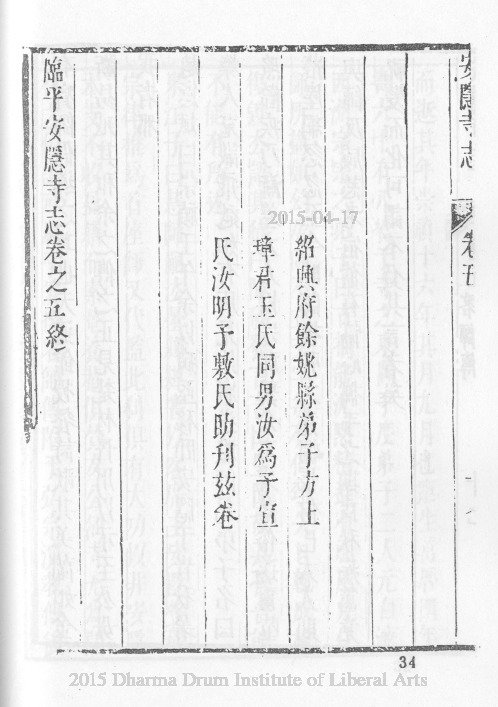 安隱寺志
卷五
紹興府餘姚縣弟子方上
璋君玉氏同男汝爲子宣
氏汝明予敷氏助刊玆卷
臨平安隱寺志卷之五終
2015-04-17
34
2015 Dharma Drum Institute of Liberal Arts